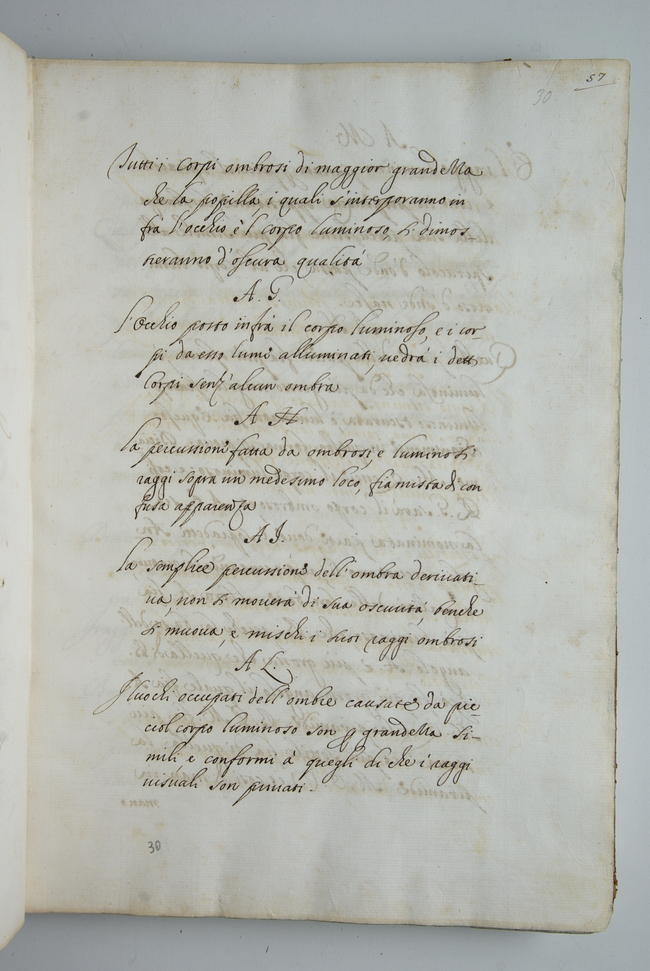 57
30
Tutti i corpi ombrosi di maggior grandezza
che la popilla i quali s'interporanno in
fra l'occhio e 'l corpo luminoso, si dimos-
treranno d'oscura qualitá
A. G.
l'occhio posto infrá il corpo luminoso, e i cor-
pi da esso lume alluminati, uedrá i detti
corpi senz'alcun ombra
A H
la percussione fatta da ombrosi, e luminosi
raggi sopra un medesimo loco, fia mista di con
fusa apparenza
A J.
la semplice percussione dell'ombra deriuati-
ua, non si mouerá di sua oscuritá, benche
si muoua, e mischi i suoi raggi ombrosi
A L.
J luochi occupati dell'ombre causate da pic-
ciol corpo luminoso son p grandezza si-
mili e conformi á quegli di che i raggi
uisuali son priuati.
30